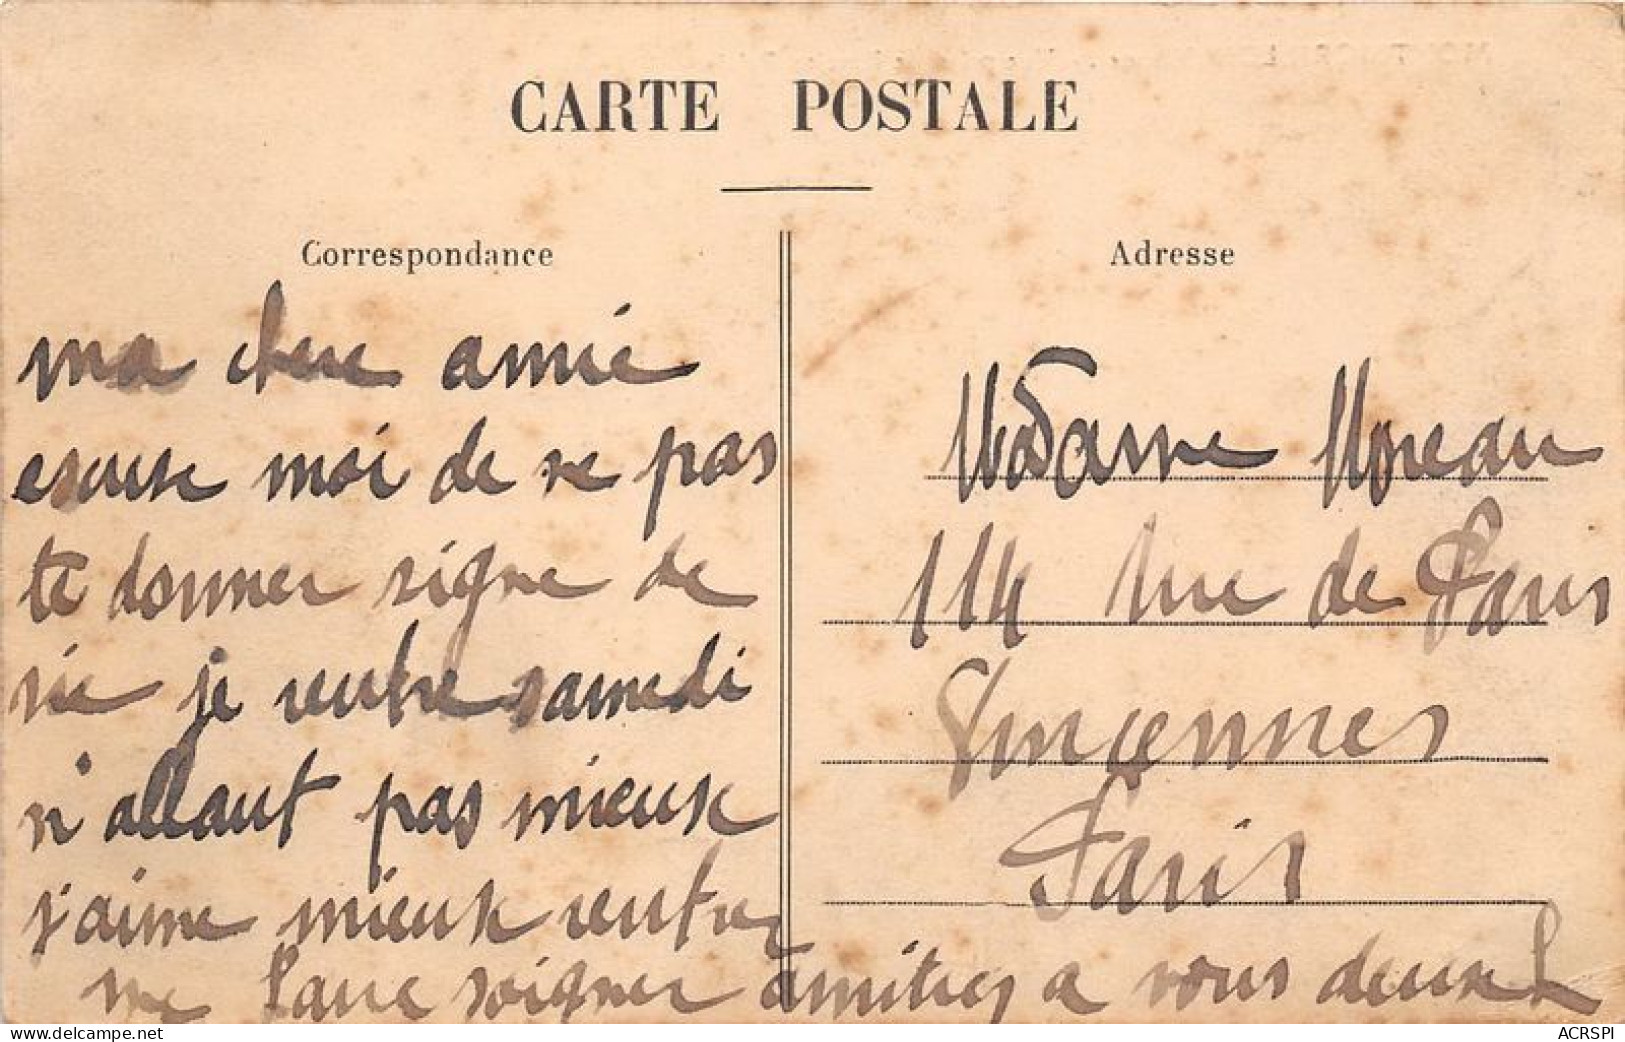 CARTE POSTALE
Correspondance
ma chere amie
escuse moi de ne pas
te donner signe de
vie je rentre samedi
n'allant pas mieux
j'aime mieux rentrer
me faire soigner amities a vous deux
Adresse
Madame Moreau
114 Rue de Paris
Vincennes
Paris
www.delcampe.net
ACRSPI